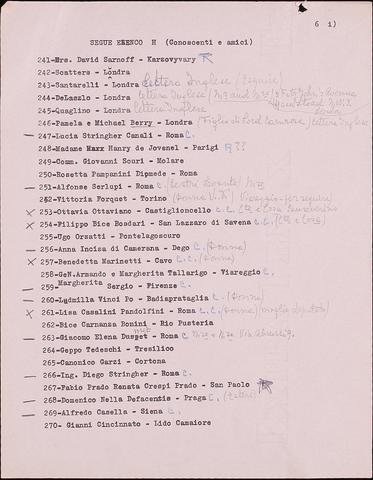 6 1)
SEGUE ELENCO H (Conoscenti e amici)
241-Mrs. David Sarnoff - Karzovyvary
242-Scatters - Londra
243-Santarelli - Londra lettera Inglese
244-DeLaszlo - Londra lettera Inglese
245-Quaglino - Londra lettera Inglese
246-Pamela e Michael Berry - Londra lettera Inglese
247-Lucia Stringher Canali - Roma C.
248-Madame Marx Hanry de Jovenel - Parigi ??
249-Comm. Giovanni Scuri - Molare
250-Rosetta Pampanini Dipmede - Roma
251-Alfonse Serlupi - Roma C.
252-Vittoria Forquet - Torino
253-Ottavia Ottaviano - Castiglioncello C.C.
254-Filippo Bice Bosdari - San Lazzaro di Savena C.C.
255-Ugo Orsatti - Pontelagoscuro
256-Anna Incisa di Camerana - Dego C. (Donna)
257-Benedetta Marinetti - Cavo C.C. (Donna)
258-GeN.Armando e Margherita Tallarigo - Viareggio C.
259-Margherita Sergio - Firenze C.
260-Ludmilla Vinci Po - Badiaprataglia C. (Donna)
261-Lisa Casalini Pandolfini - Roma C.C. (Donna)
262-Bice Carnanza Bonini - Rio Pusteria
263-Giacomo Elena - Roma C.
264-Geppo Tedeschi - Tresilico
265-Canonico Garzi - Cortona
266-Ing. Diego Stringher - Roma C.
267-Fabio Prado Renata Crespi Prado - San Paolo
268-Domenico Nella Defacentis - Praga C.
269-Alfredo Casella - Siena C.
270- Gianni Cincinnato - Lido Camaiore